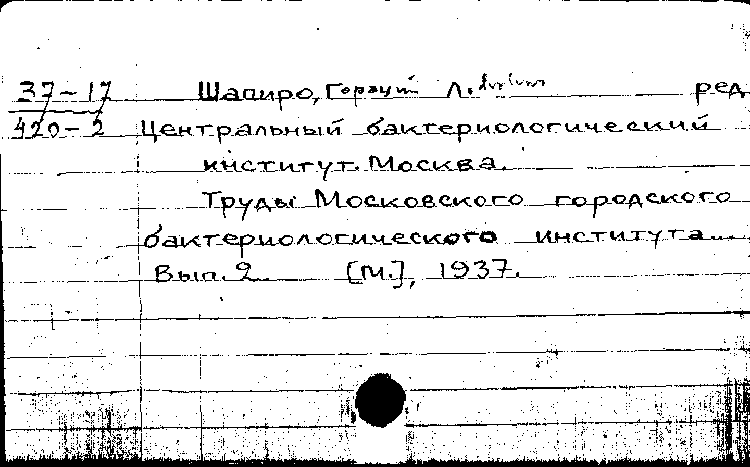 37-17 Шапиро, Л. ред
420-2 Центральный бактериологический
институт. Москва.
Труды Московского городского
бактериологического института...
Вып. 2 [М.], 1937.